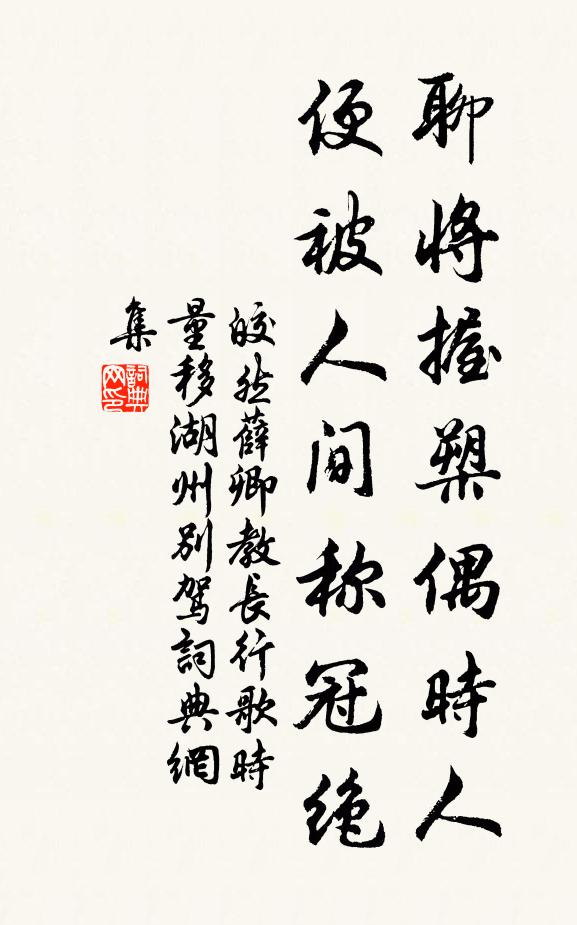 聊將握槊偶時人
便被人间称冠绝
皎然薛卿教長行歌時
量移湖州别駕詞典網
集
詞典
网印